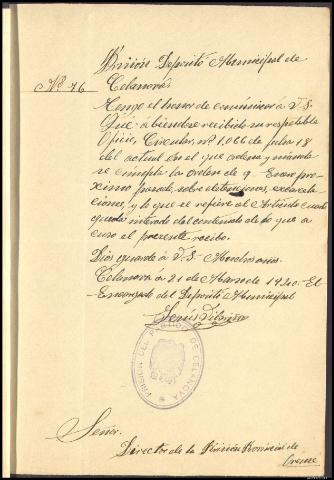 Prisión Depósito Municipal de
Celanova
Nº 76
Tengo el honor de comunicar á V.S.
Que á biendose recibido su respetable
Oficio, Circular, nº 1.066 de fecha 18
del actual en el que ordena y manda
se cumpla la orden de 9 Enero pro-
ximo pasado, sobre detenciones, excarcela
ciones, y lo que se refiere al Articulo cuarto
quedo interado del contenido de lo que a
cuso el presente recibo.
Dios guarde á V.S. Muchos años.
Celanova á 21 de Marzo de 1940. El
Encargado del Depósito Municipal
Jesús
PRISION DEL PARTIDO DE CELANOVA
Señor.
Director de la Prisión Provincial de
Orense